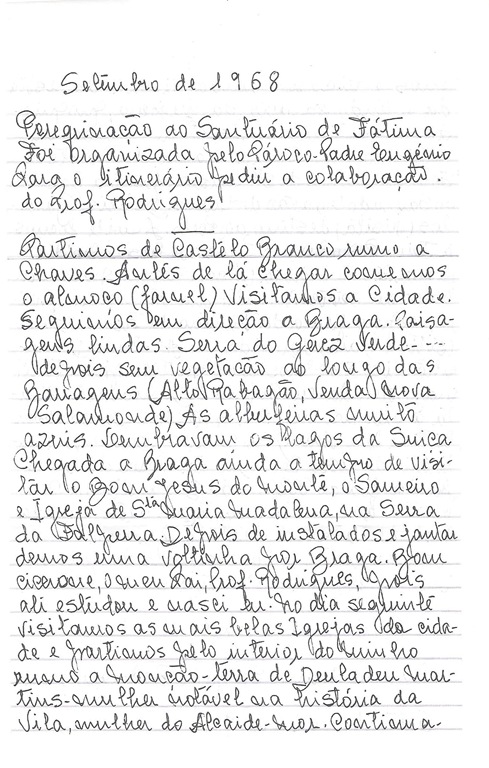 Setembro de 1968
Peregrinação ao Santuário de Fátima
Foi organizada pelo Pároco-Padre Eugénio
Para o itinerário pediu a colaboração.
do Prof. Rodrigues
Partimos de Castelo Branco rumo a
Chaves. Antes de lá chegar comemos
o almoço (farnel) Visitamos a Cidade.
Seguimos em direção a Braga. Paisa-
gens lindas. Serra do Gerez verde----
depois sem vegetação ao longo das
Barragens (Alto Rabagão, Venda Nova
Salamonde) As albufeiras muito
azuis. Lembravam os Lagos da Suiça
Chegada a Braga ainda a tempo de visi-
tar o Bom Jesus do Monte, o Sameiro
e Igreja de Sta Maria Madalena, na Serra
da Falperra. Depois de instalados e jantar
demos uma voltinha por Braga. Bom
cicerone, o meu Pai, Prof. Rodrigues, pois
ali estudou e nasci eu. No dia seguinte
visitamos as mais belas Igrejas da cida-
de e partimos pelo interior do Minho
rumo a Monção-terra de Deuladeu Mar-
tins-mulher notável na história da
Vila, mulher do Alcaide-Mor. Continua-